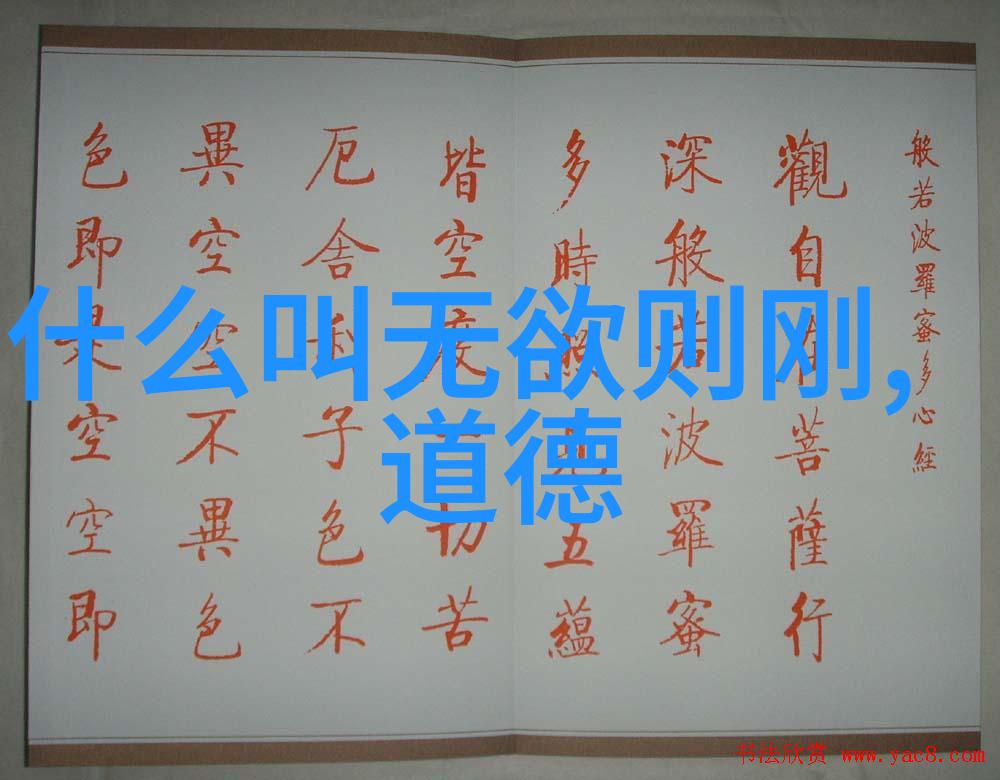 什么叫无欲则刚,
道德
般若波羅蜜多心經
觀自在菩薩行
深般若波羅蜜
多時照見五蘊
皆空度一切苦
厄舍利子色不
異空空不異色
色即是空空即
书法欣赏 www.yac8.com